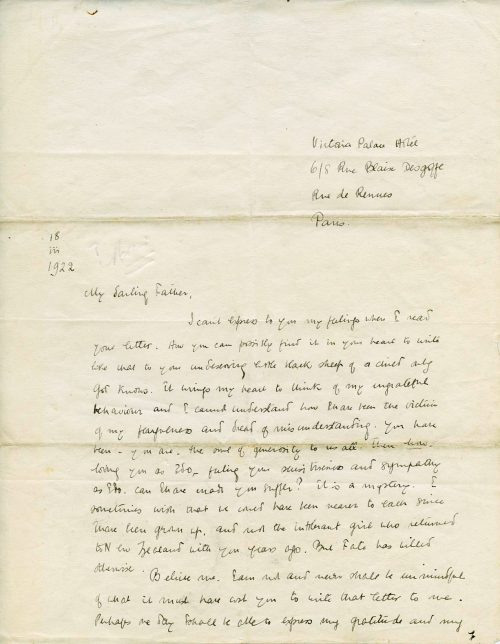 Victoria Palace Hôtel
6/8 Rue Blaise Desgoffe
Rue de Rennes
Paris.
18
iii
1922
My Darling Father,
I cant express to you my feelings when I read
your letter. How you can possibly find it in your heart to write
like that to your undeserving little black sheep of a child only
God knows. It wrings my heart to think of my ungrateful
behaviour and I cannot understand how I have been the victim
of my fearfulness and dread of misunderstanding. You have
been - you are, the soul of generosity to us all. Then how,
loving you as I do - feeling your sensitiveness and sympathy
as I do, can I have made you suffer? It is a mystery. I
sometimes wish that we could have been nearer to each since
I have been grown up, and not the intolerant girl who returned
to New Zealand with you years ago. But Fate has willed
otherwise.
Believe me. I am not and never shall be unmindful
of what it must have cost you to write that letter to me.
Perhaps one day I shall be able to express my gratitude and my